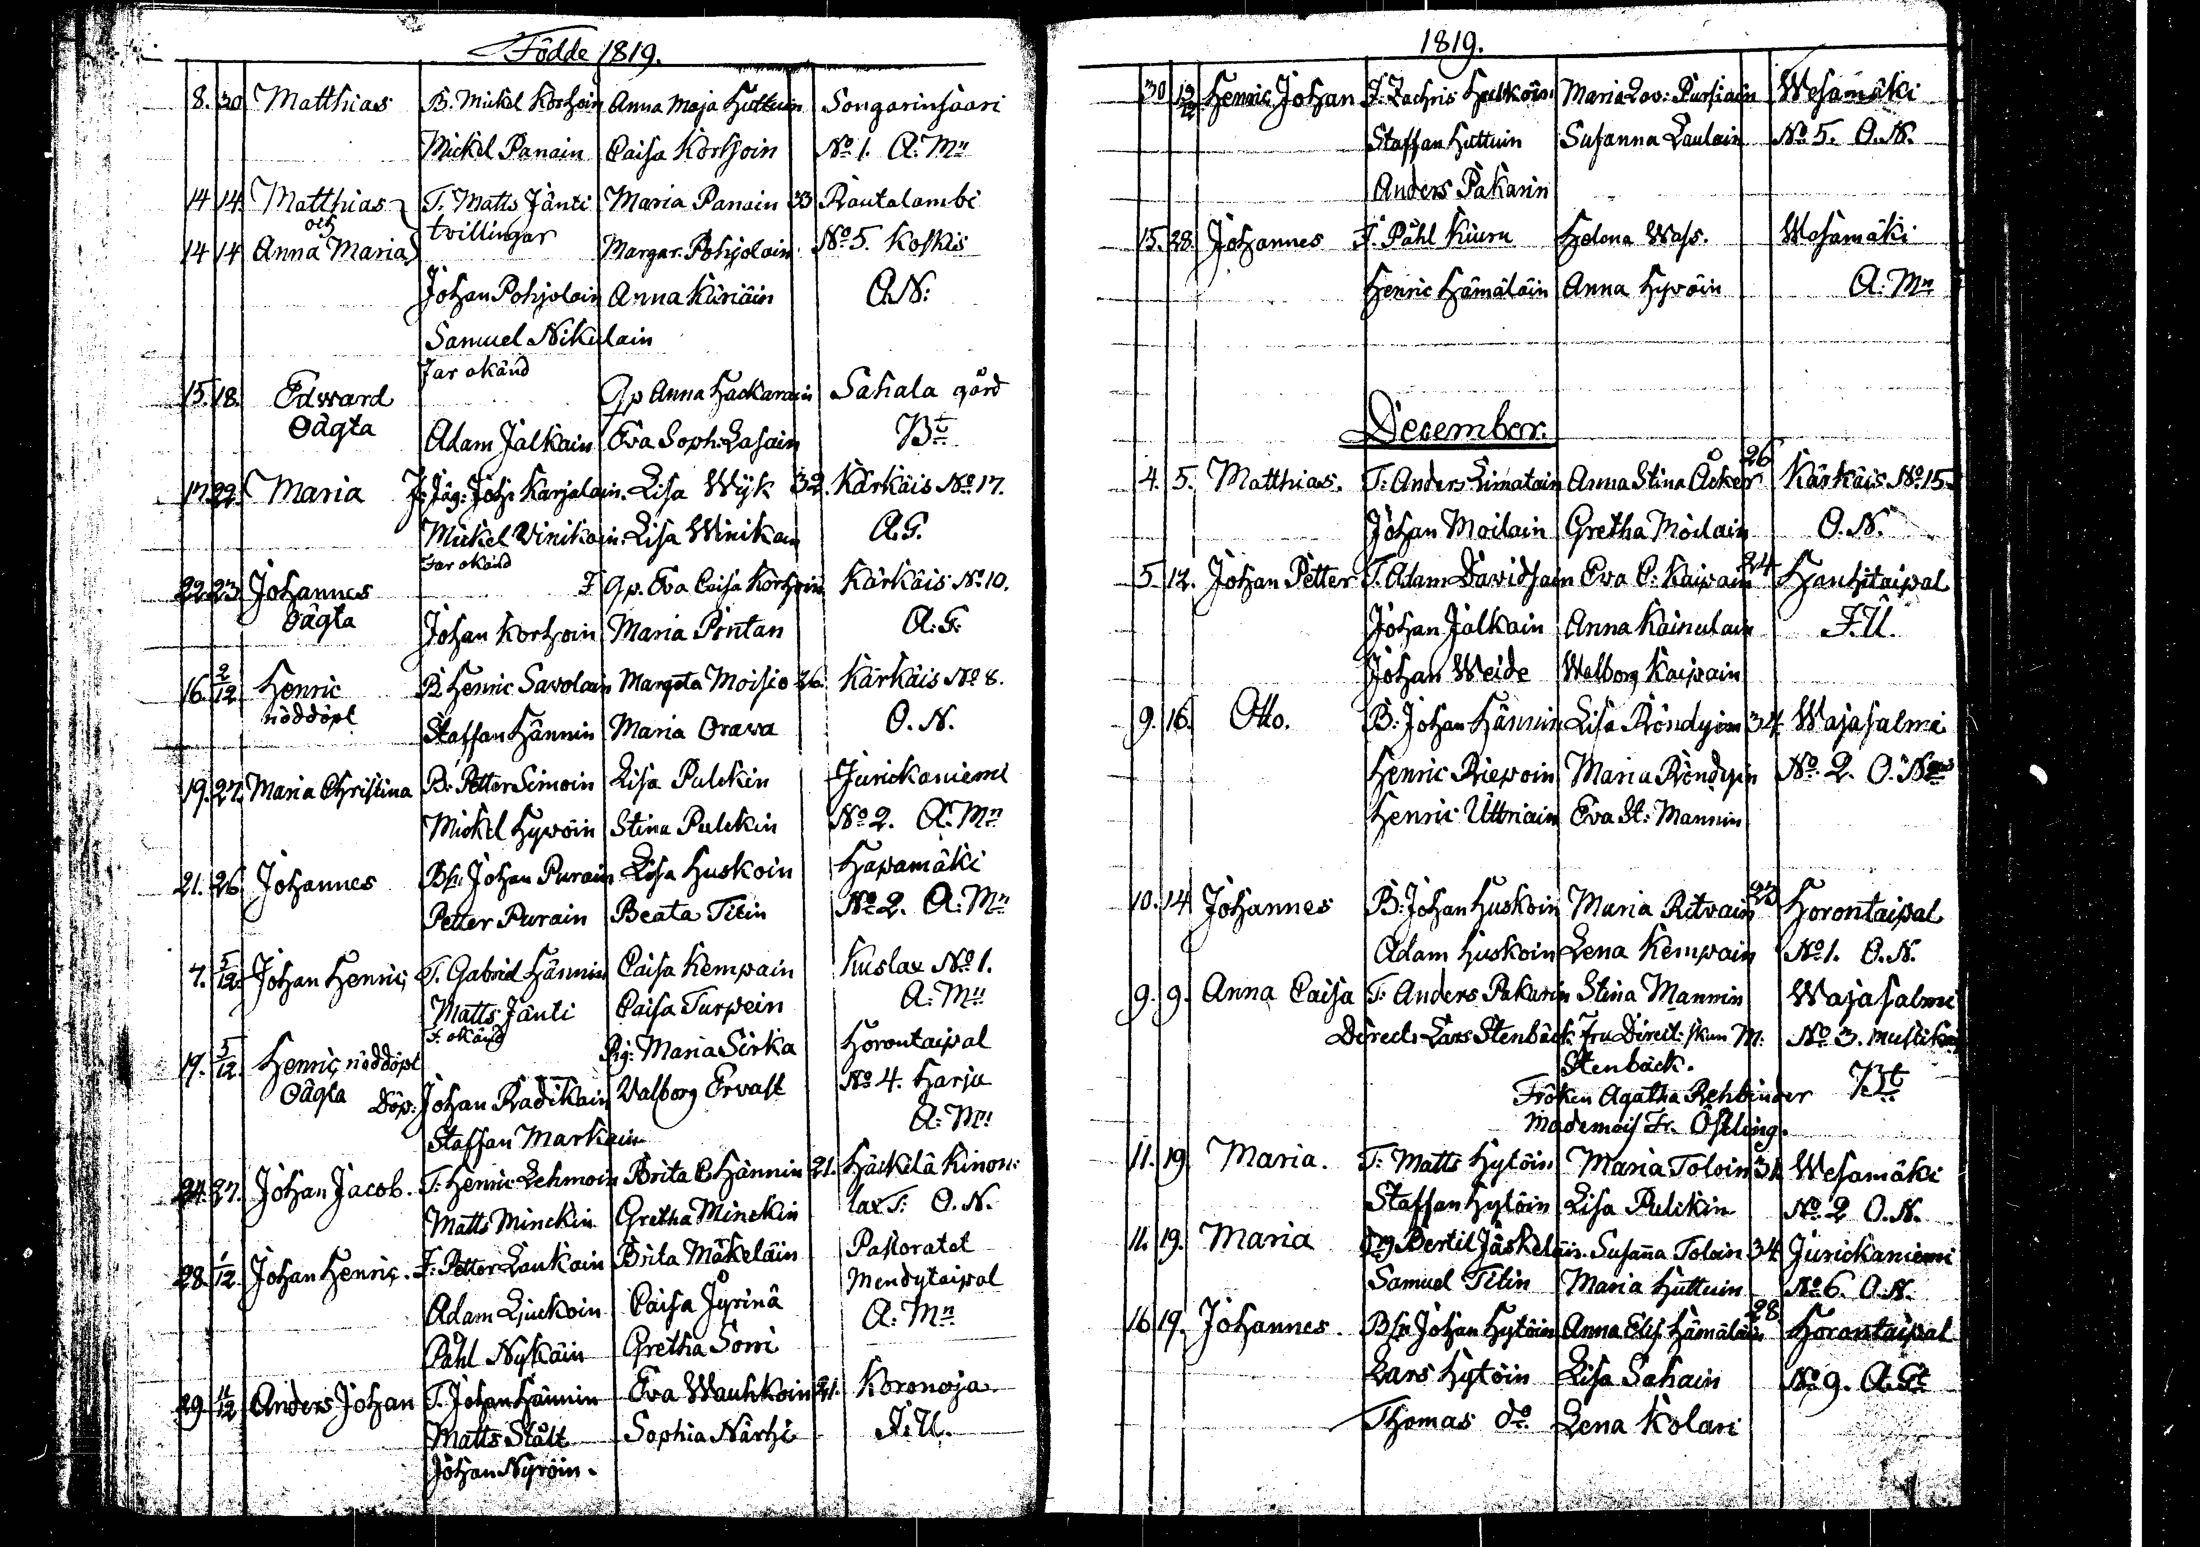 Födde 1819.
8. 30 Matthias B. Mickel Korhoin Anna Maja Huttuin Songarinsaari
Mickel Panain Caisa Korhoin No 1. A. Mn
14 14 Matthias T. Matts Jänti Maria Panain 33 Rautalambi
och tvillingar
14 14 Anna Maria Margar. Pohjolain No 5. Koskis
Johan Pohjolain Anna Kinäin O.N:
Samuel Nikulain
Far okänd
15. 18. Edward Qp Anna Hackarain Sahala gård
Oägta Adam Jalkain Eva Soph: Lasain Bt
17. 22. Maria F: Jäg: Joh: Karjalain. Lisa Wijk 32. Kärkäis No 17.
Mickel Vinikain. Lisa Winikain A.G.
Far okänd
22. 23. Johannes F Qp. Eva Caisa Korhoin Kärkäis No 10.
Oägta Johan Korhoin Maria Pintan A: G:
16. 2/12 Henric B. Henric Savolain Margeta Moisio 36. Kärkäis No 8.
nöddöpt Staffan Hännin Maria Orawa O. N.
19. 27. Maria Christina B. Petter Simoin Lisa Pulckin Jurickaniemi
Mickel Hyvöin Stina Pulckin No 2. A. Mn
21. 26. Johannes Bs: Johan Purain Lisa Huskoin Hapamäki
Petter Purain Beata Titin No 2. A: Mn
7. 5/12 Johan Henric T. Gabriel Hännin Caisa Kempain Kuslax No 1.
Matts Jänti Caisa Turpein A: Mn
F. okänd
19. 5/12. Henric nöddöpt Pig: Maria Sirka Horontaipal
Oägta Döp: Johan Radikain Valborg Ervast No 4. Harju
Staffan Markain A: Mn
24. 27. Johan Jacob. T. Henric Lehmoin Brita C Hännin 21. Häckilä Kinon:
Matts Minckin Gretha Minckin lax T: O. N.
28. 1/12. Johan Henric. F: Petter Laukain Brita Mäkeläin Pastoratet
Adam Liuckoin Caisa Jyrinä Mendytaipal
Påhl Nykäin Gretha Sorri A: Mn
29. 11/12 Anders Johan T. Johan Hännin Eva Wauhkoin 21. Koronoja
Matts Stålt Sophia Närhi J: U.
Johan Nyröin.
1819.
30 19/12 Henric Johan F: Zachris Huskoin Maria Lov: Pursiain Wesamäki
Staffan Huttuin Susanna Laulain No 5. O.N.
Anders Pakarin
15. 28. Johannes F. Påhl Kiuru Helena Wass. Wesamäki
Henric Hämäläin Anna Hyvöin A: Mn
December.
4. 5. Matthias. T: Anders Limatain Anna Stina Åcker 26 Kärkäis No 15.
Johan Moilain Gretha Moilain O. N.
5. 12. Johan Petter T. Adam Davidsain Eva C: Kaipain 24 Hanhitaipal
Johan Jalkain Anna Kainulain J. U.
Johan Weide Walborg Kaipain
9. 16. Otto. B: Johan Hännin Lisa Röndyin 34. Wajasalmi
Henric Riepoin Maria Röndyin No. 2. O. N
Henric Uttriain Eva St: Mannin
10. 14 Johannes B: Johan Huskoin Maria Ritvain 23 Horontaipal
Adam Huskoin Lena Kempain No 1. O.N.
9. 9. Anna Caisa T: Anders Pakarin Stina Mannin Wajasalmi
Direct: Lars Stenbäck Fru Direct: skan M: No 3. Mustika
Stenbäck. Bt
Fröken Agatha Rehbinder
Mademois Fr. Östling.
11. 19 Maria. T: Matts Hytöin Maria Toloin 31 Wesamäki
Staffan Hytöin Lisa Pulckin No. 2 O.N.
11. 19. Maria Bertil Jäskeläin. Susaña Toloin 34 Jurickaniemi
Samuel Titin Maria Huttuin No 6. O.N.
16 19. Johannes. Bsn Johan Hytöin Anna Elis Hämäläin 28 Horontaipal
Lars Hytöin Lisa Sahain No 9. A. Gt
Thomas do. Lena Kolari